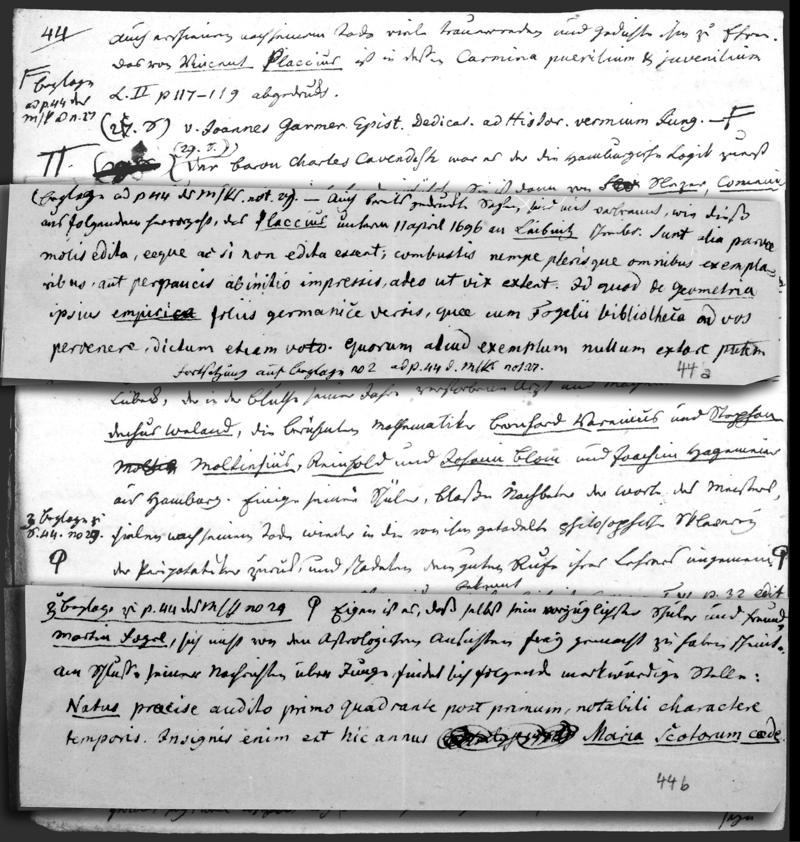 44
auch erschienen nach seinem Tode viele Trauerreden und Gedichte ihm zu Ehren.
Das von Vincent Placcius ist in dessen Carmina puerilium & juvenilium
L. II p 117–119 abgedruckt.
Beylage
ad p. 44 des
m/ß n. 27
(27. ) v. Joannes Garmer. Epist. Dedicat. ad Histor. vermium Jung. —
II. (29. ) Der Baron Charles Cavendish war es der die Hamburgische Logik zuerst
Sie ist dann von
(Beylage ad p 44 des m/ks. not. 27. — Auch bereits gedruckte Sachen sind uns verbrannt, wie dieß
aus folgendem hervorgeht, das Placcius unterm 11 april 1696 an Leibnitz schreibt. Sunt alia parvae
molis edita, eeque ac si non edita essent; combustis nempe plerisque omnibus exempla-
ribus, aut perpaucis ab initio impressis, adeo ut vix extent. Id quod de geometria
ipsius empirica foliis germanice versis, quae cum Fogelii bibliotheca ad vos
pervenere, dictum etiam volo. Quorum aliud exemplum nullum extare putem
Fortsetzung auf Beylage no 2 ad p. 44 d. m/ks not 27.
44a
Lübeck, der in der Blüthe seiner Jahre verstorbene Arzt und
Weland, die berühmten Mathematiker Bernhard Varenius und Stephan
Moltkesius, Reinhold und Johann Blom und Joachim Hagemeier
aus Hamburg. Einige seiner Schüler, bloße Nachbeter der Worte des Meisters,
z Beylage zu
S. 44. no 29.
fielen nach seinem Tode wieder in die von ihm getadelte philosophische Sklaverey
der Peripatetiker zurück, und schadeten dem guten Rufe ihres Lehrers ungemein
bekannt
p. 32 edit
z Beylage zu p. 44 des m/ß no 29 Eigen ist es, daß selbst sein vorzüglichster Schüler und Freund
Martin Fogel, sich nicht von den Astrologischen Ansichten frey gemacht zu haben scheint.
am Schluße seiner Nachrichten über Junge, findet sich folgende merkwürdige Stelle:
Natus praecise audito primo quadrante post primum, notabili charactere
temporis. Insignis enim est hic annus Maria Scotorum caede.
44b